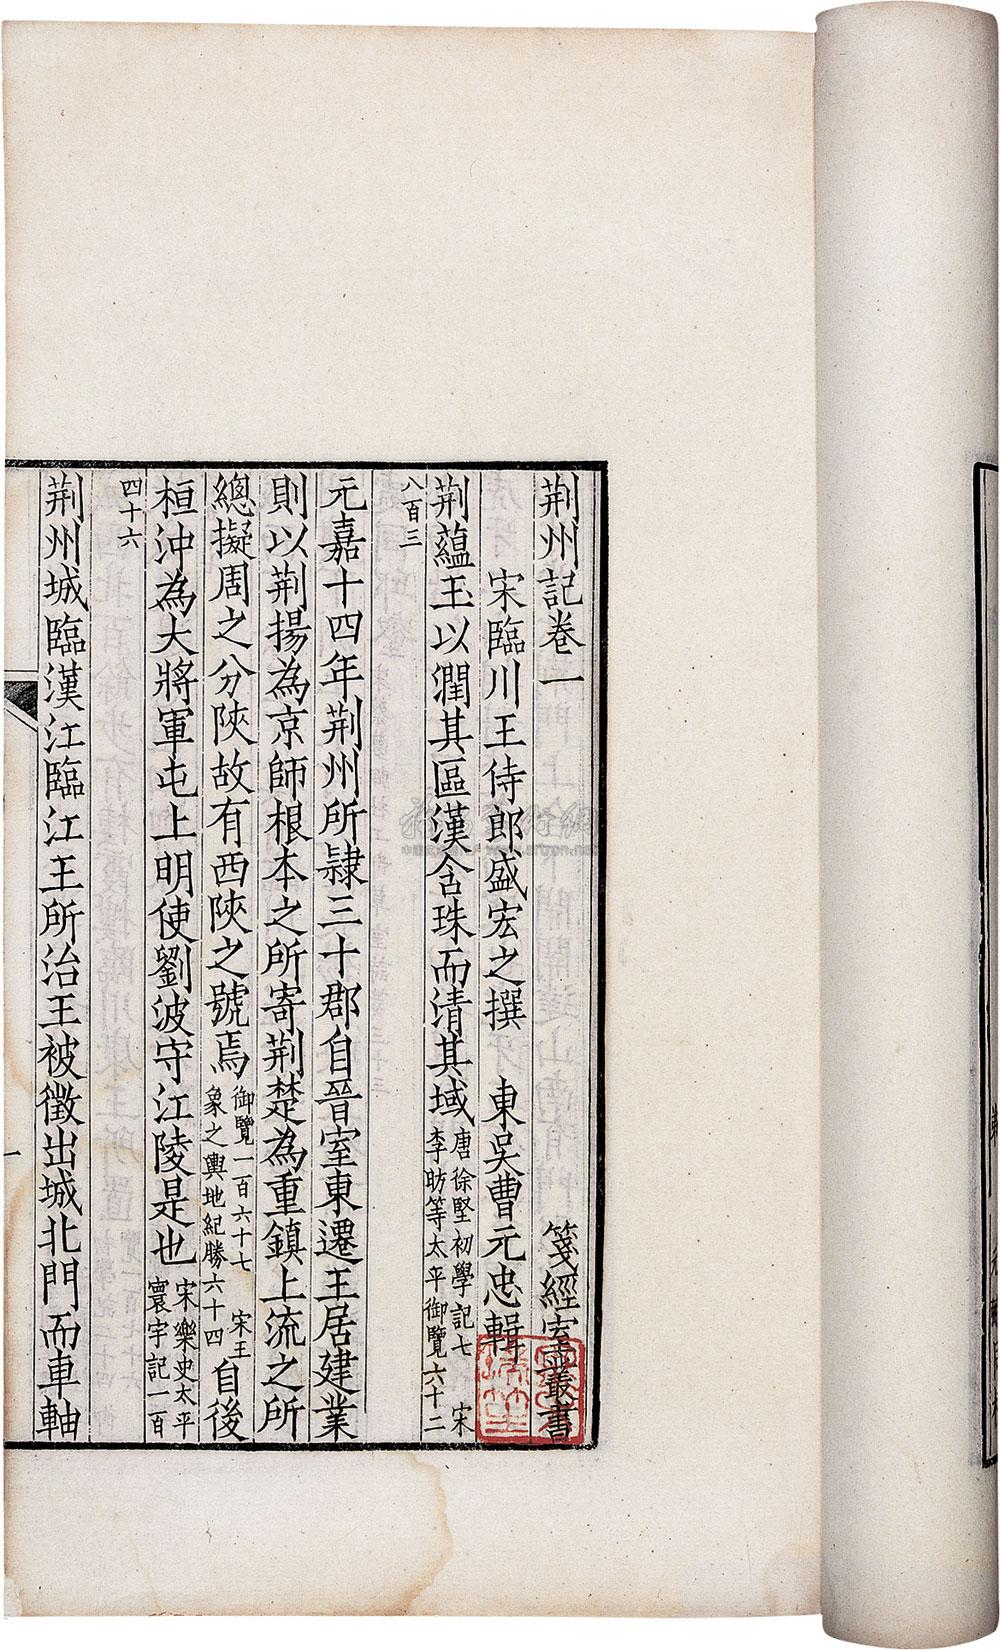 荆州記卷一　箋經室叢書
宋臨川王侍郎盛宏之撰　東吳曹元忠輯
荆蘊玉以潤其區漢含珠而清其域唐徐堅初學記七　宋李昉等太平御覽六十二
八百三
元嘉十四年荆州所隷三十郡自晉室東遷王居建業
則以荆揚為京師根本之所寄荆楚為重鎮上流之所
總擬周之分陝故有西陝之號焉御覽一百六十七　宋王象之輿地紀勝六十四自後
桓沖為大將軍屯上明使劉波守江陵是也宋樂史太平寰宇記一百
四十六
荆州城臨漢江臨江王所治王被徵出城北門而車軸
一